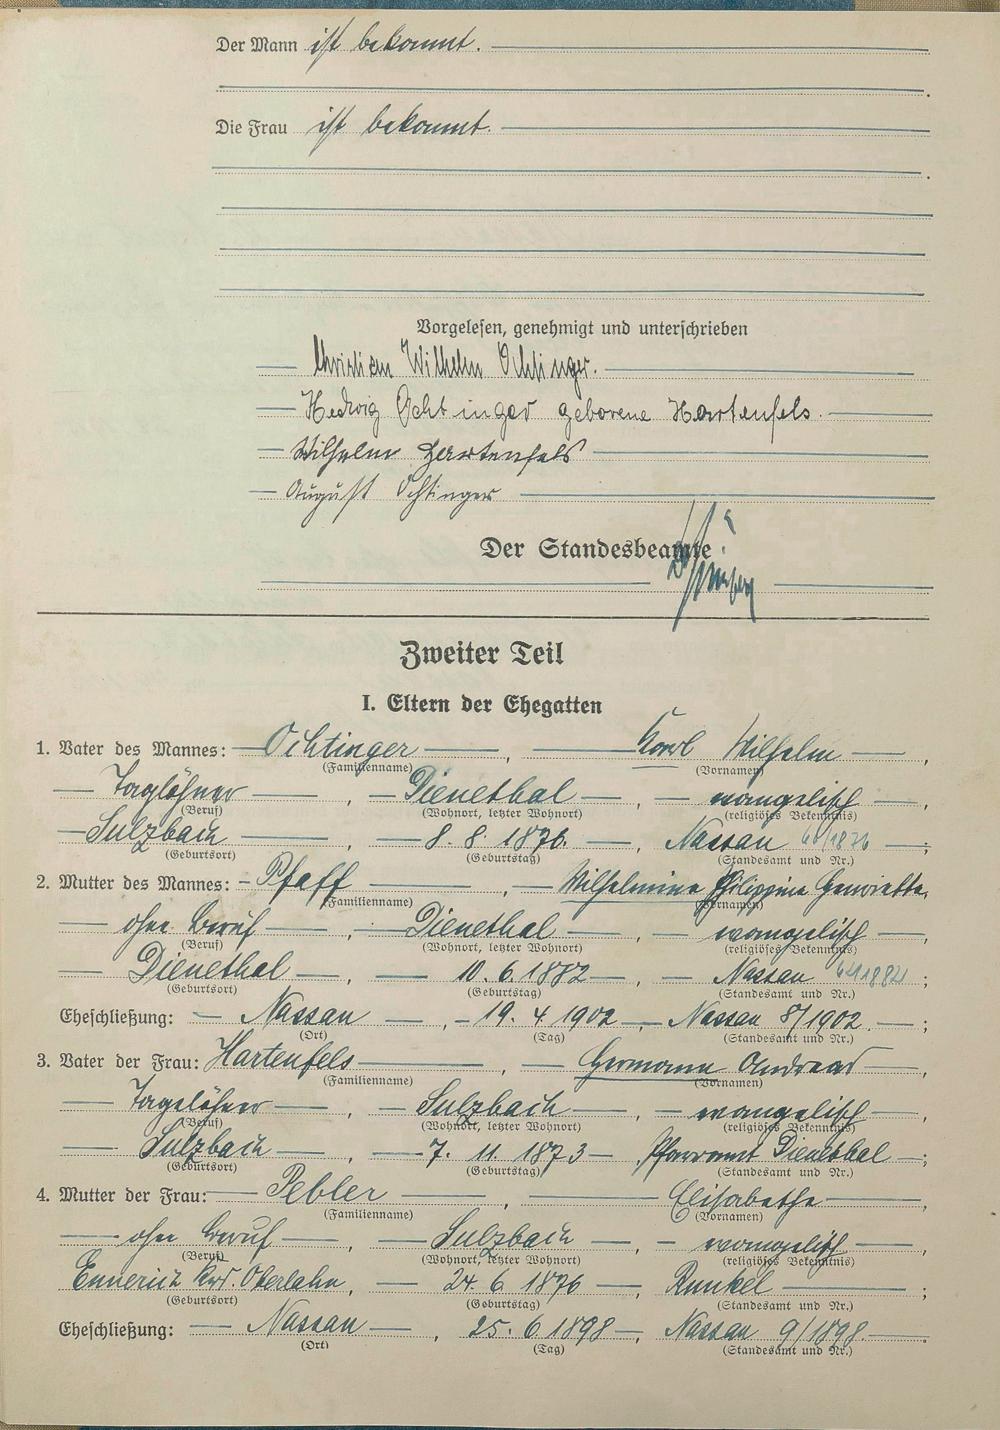 Der Mann ist bekannt.
Die Frau ist bekannt.
Vorgelesen, genehmigt und unterschrieben
Christian Wilhelm Ochtinger.
Hedwig Ochtinger geborene Hartenfels.
Wilhelm Hartenfels
August Ochtinger
Der Standesbeamte
Zweiter Teil
I. Eltern der Ehegatten
1. Vater des Mannes: Ochtinger, Karl Wilhelm,
(Familienname) (Vornamen)
Taglöhner, Dienethal, evangelisch,
(Beruf) (Wohnort, letzter Wohnort) (religiöses Bekenntnis)
Sulzbach, 8. 8. 1876, Nassau 60/1876;
(Geburtsort) (Geburtstag) (Standesamt und Nr.)
2. Mutter des Mannes: Pfaff, Wilhelmine Philippine Henriette,
(Familienname) (Vornamen)
ohne Beruf, Dienethal, evangelisch,
(Beruf) (Wohnort, letzter Wohnort) (religiöses Bekenntnis)
Dienethal, 10. 6. 1882, Nassau;
(Geburtsort) (Geburtstag) (Standesamt und Nr.)
Eheschließung: Nassau, 19. 4. 1902, Nassau 8/1902.;
(Ort) (Tag) (Standesamt und Nr.)
3. Vater der Frau: Hartenfels, Hermann Andreas,
(Familienname) (Vornamen)
Tagelöhner, Sulzbach, evangelisch,
(Beruf) (Wohnort, letzter Wohnort) (religiöses Bekenntnis)
Sulzbach, 7. 11. 1873 Pfarramt Dienethal;
(Geburtsort) (Geburtstag) (Standesamt und Nr.)
4. Mutter der Frau: Pebler, Elisabethe,
(Familienname) (Vornamen)
ohne Beruf, Sulzbach, evangelisch,
(Beruf) (Wohnort, letzter Wohnort) (religiöses Bekenntnis)
Ennerich Krs. Oberlahn, 24. 6. 1876, Runkel;
(Geburtsort) (Geburtstag) (Standesamt und Nr.)
Eheschließung: Nassau, 25. 6. 1898, Nassau 9/1898.
(Ort) (Tag) (Standesamt und Nr.)